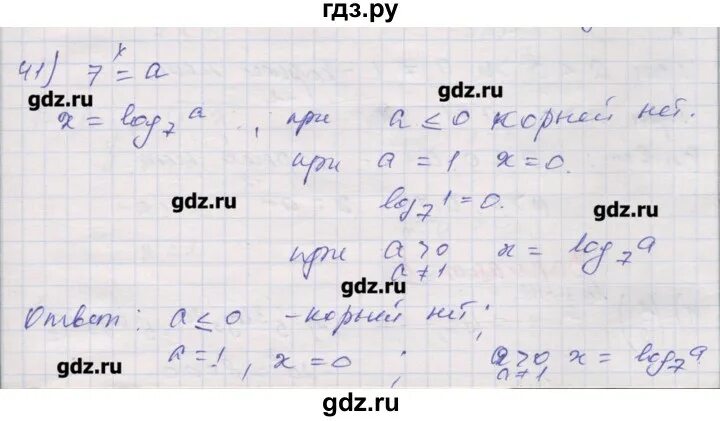 гдз.ру
41) 7ˣ = a
gdz.ru gdz.ru
x = log₇ a , при a ≤ 0 корней нет.
при a = 1 x = 0.
gdz.ru log₇ 1 = 0. gdz.ru
при a > 0 x = log₇ a
a ≠ 1
gdz.ru
Ответ: a ≤ 0 - корней нет;
a = 1, x = 0 ; a > 0 x = log₇ a
gdz.ru a ≠ 1 gdz.ru
gdz.ru